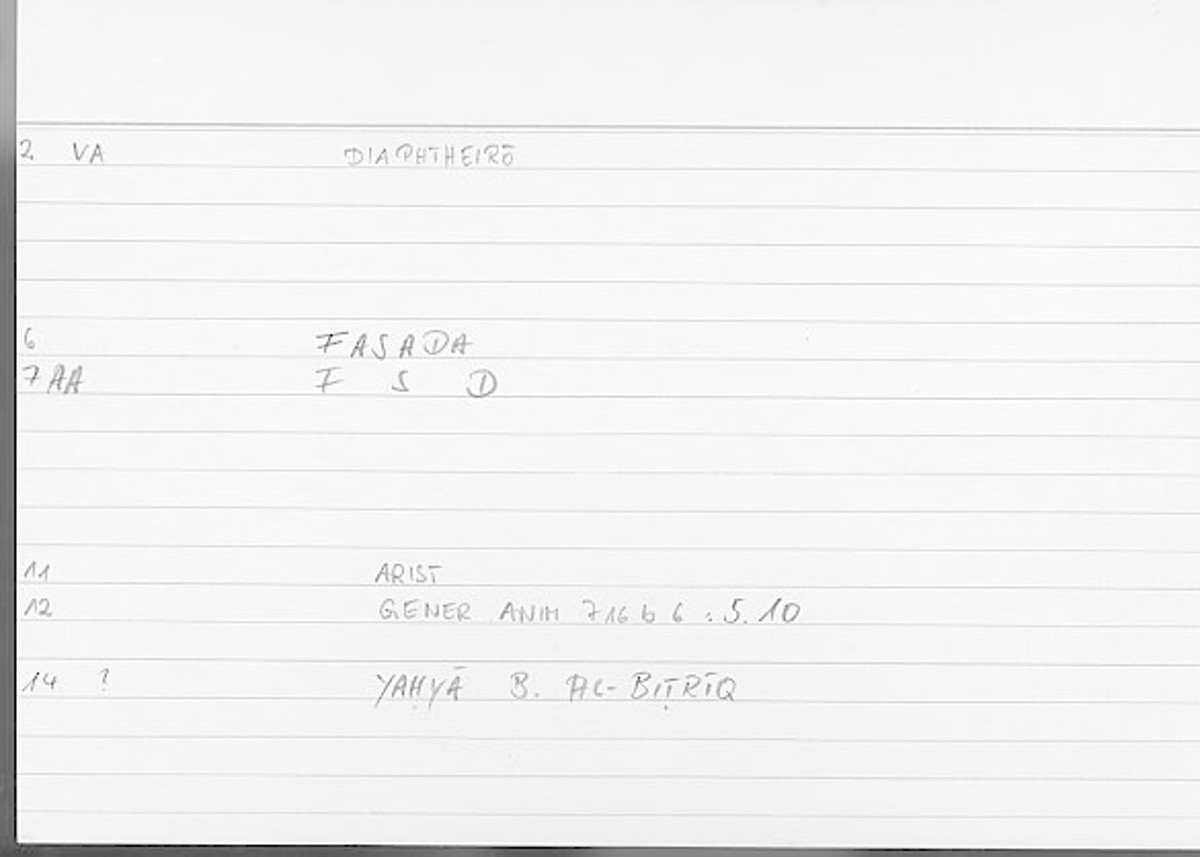 2 VA DIAPHTHEIRŌ
6 FASADA
7 AA F S D
11 ARIST
12 GENER ANIM 716 b 6 : 5.10
14 ? YAḤYĀ B. AL-BIṬRĪQ